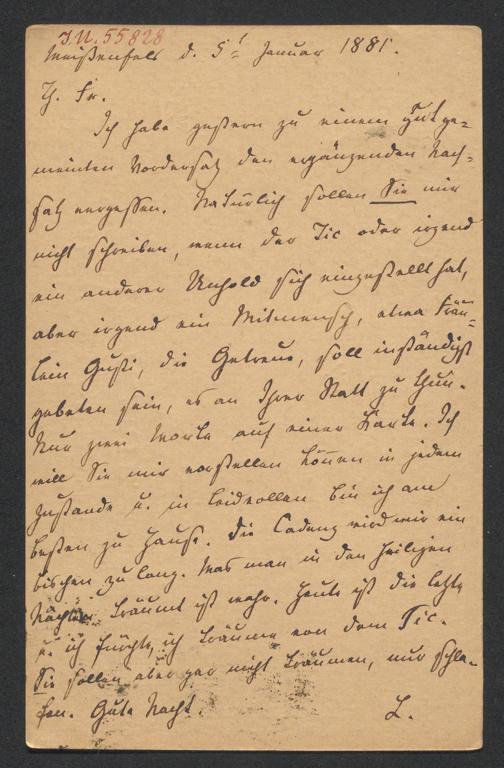 I.N. 55828
Weißenfels d. 5t Januar 1881.
Th. Fr.
Ich habe gestern zu einem gut ge-
meinten Vordersatz den ergänzenden Nach-
satz vergessen. Natürlich sollen Sie mir
nicht schreiben, wenn der Tic oder irgend
ein anderer Unhold sich eingestellt hat,
aber irgend ein Mitmensch, etwa Fräu-
lein Gusti, die Getreue, soll inständigst
gebeten sein, es an Ihrer Statt zu thun.
Nur zwei Worte auf einer Karte. Ich
will Sie mir vorstellen können in jedem
Zustande u. in leidvollen bin ich am
besten zu Hause. Die Cadenz wird mir ein
bischen zu lang. Was man in den heiligen
Nächten träumt ist wahr. Heute ist die letzte
u. ich fürchte, ich träume von dem Tic.
Sie sollen aber gar nicht träumen, nur schla-
fen. Gute Nacht.
L.